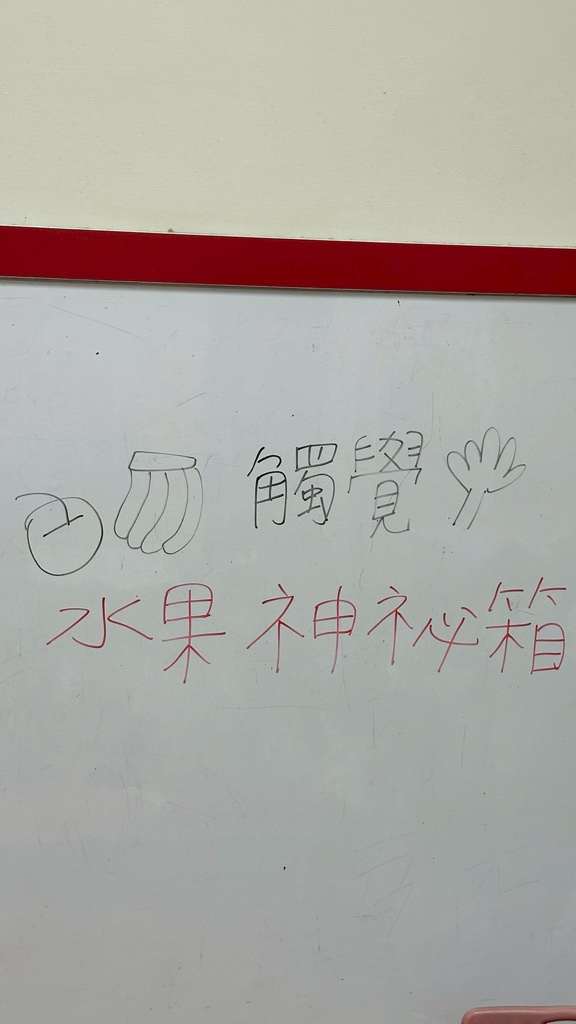 觸覺
水果神祕箱